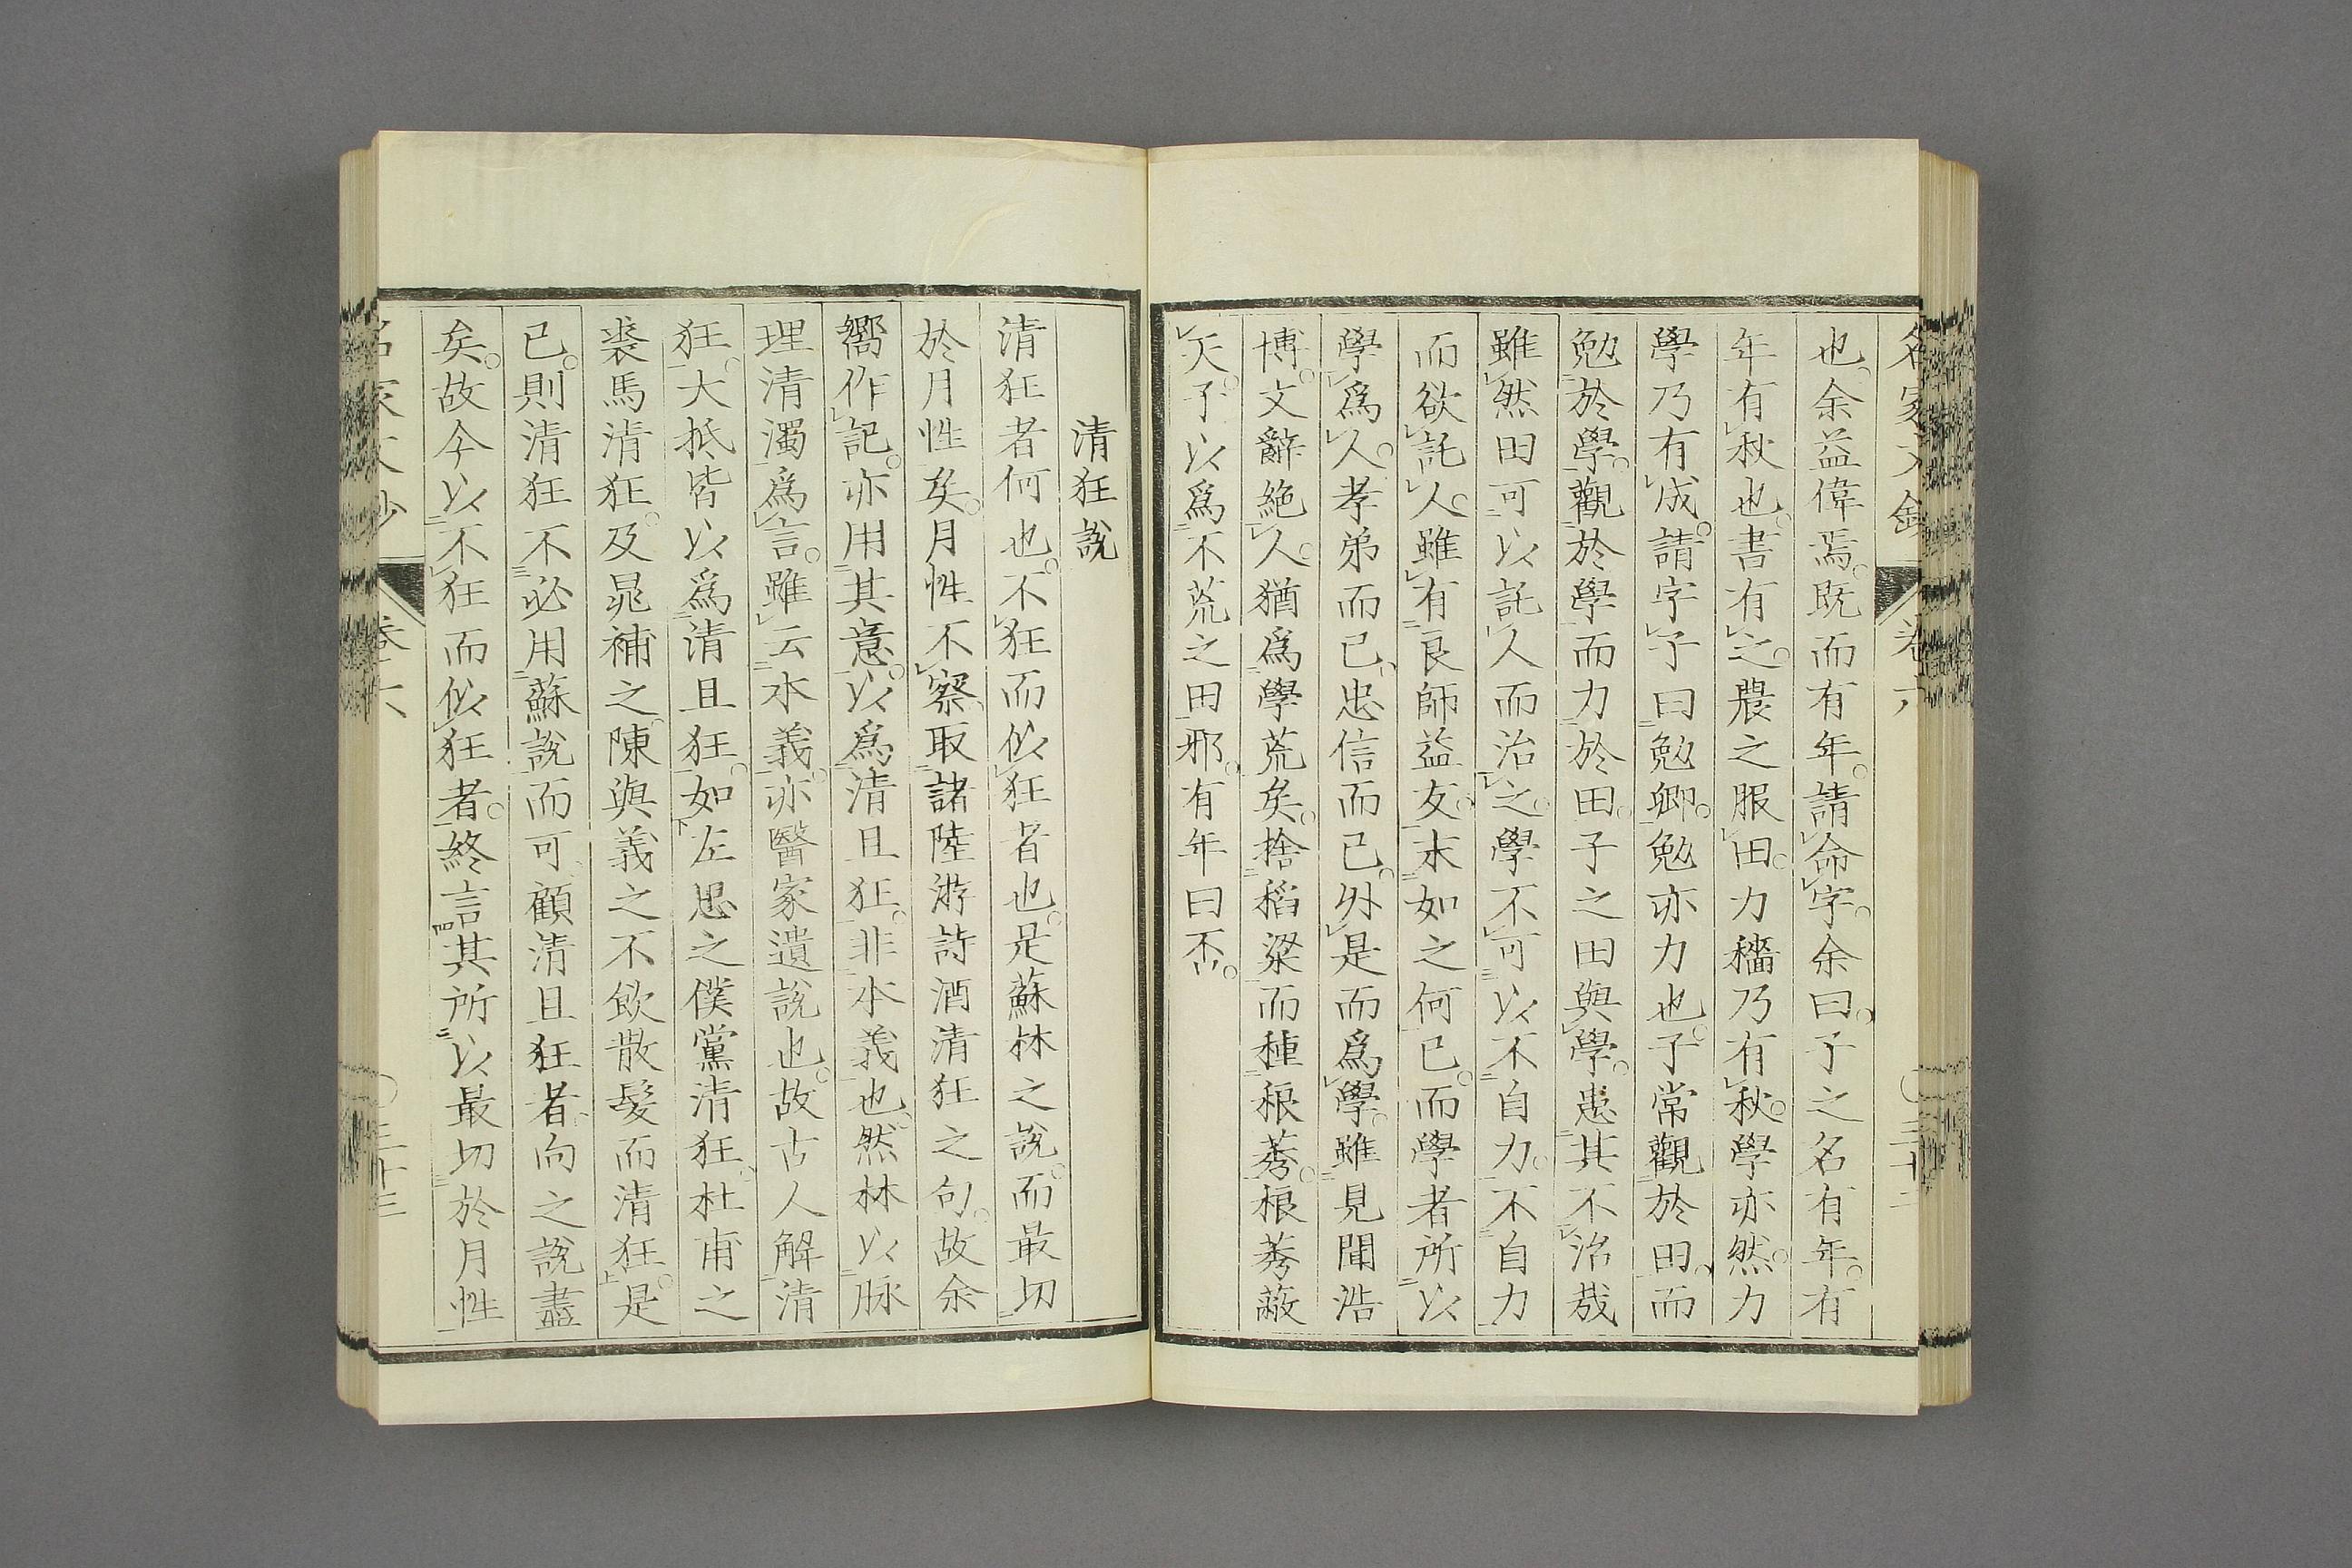 也。余益偉焉。既而有年。請命字。余曰。子之名有年。有
年有秋也。書有之。農之服田。力穡乃有秋。學亦然。力
學乃有成。請字子曰勉卿。勉亦力也。子常觀於田。而
勉於學。觀於學而力於田。子之田與學。患其不治哉
雖然田可以託人而治之。學不可以不自力。不自力
而欲託人。雖有良師益友。末如之何已。而學者所以
學爲人。孝弟而已。忠信而已。外是而爲學。雖見聞浩
博。文辭絶人。猶爲學荒矣。捨稻粱而種稂莠。稂莠蔽
天。子以爲不荒之田邪。有年曰否。
清狂說
清狂者何也。不狂而似狂者也。是蘇林之說。而最切
於月性矣。月性不察。取諸陸游詩酒清狂之句。故余
嚮作記。亦用其意。以爲清且狂。非本義也。然林以脉
理清濁爲言。雖云本義。亦醫家遺說也。故古人解清
狂。大抵皆以爲清且狂。如左思之僕黨清狂。杜甫之
裘馬清狂。及晁補之。陳與義之不飲散髮而清狂。是
已。則清狂不必用蘇說而可。顧清且狂者。向之說盡
矣。故今以不狂而似狂者。終言其所以最切於月性